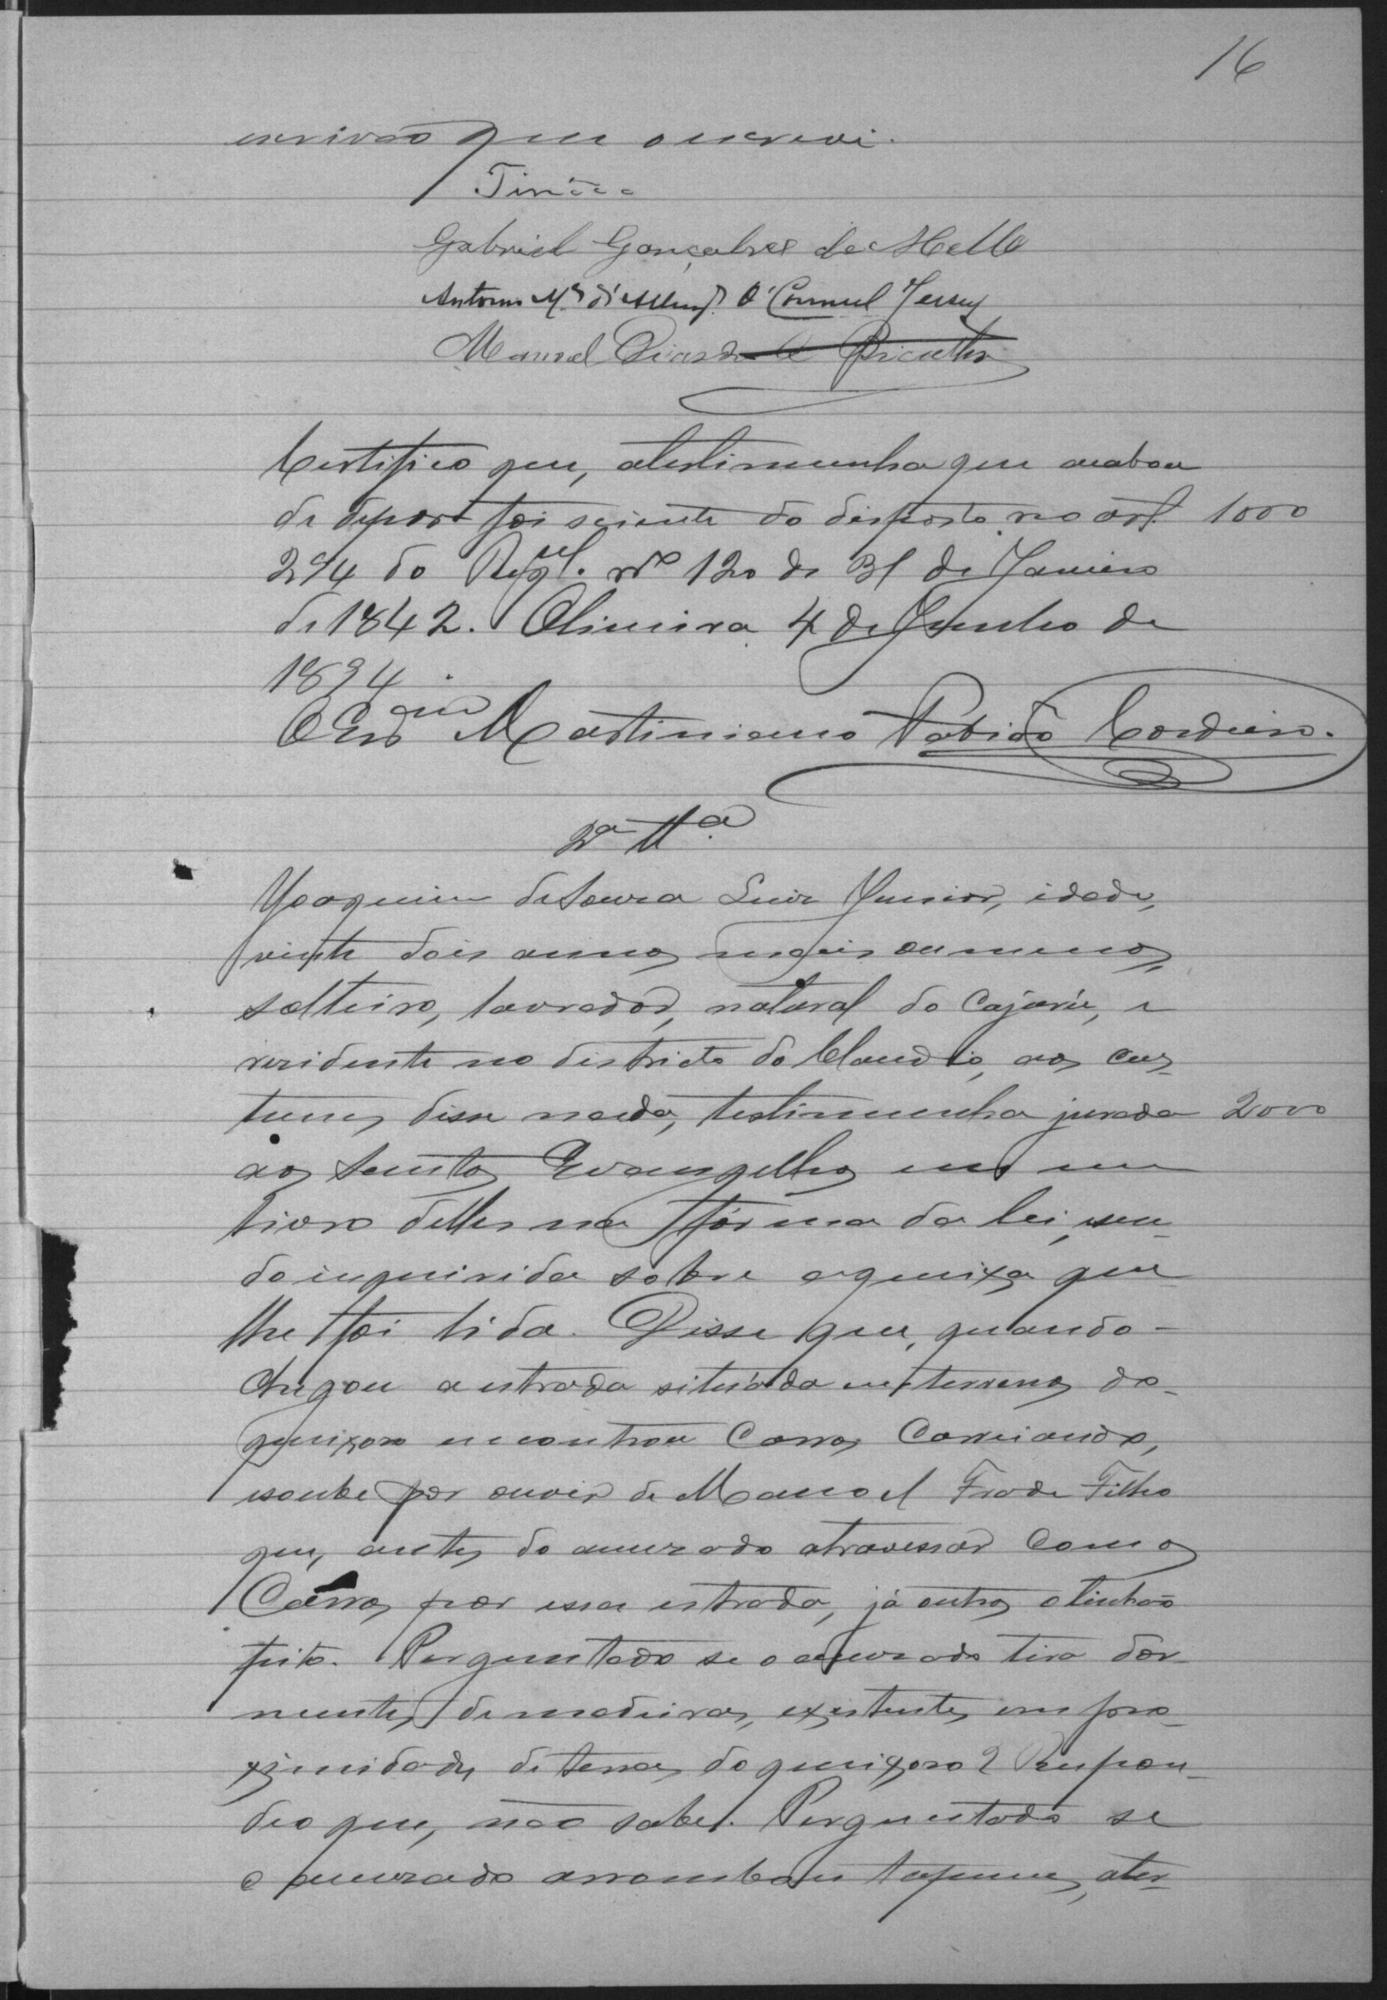 16
escrivão que o escrevi.
Gabriel Gonçalves de Mello
Antonio O'Connell Jersey
Manoel
Certifico que, atestimunha que acabou
de depôr foi sciente do disposto no art. 1000
294 do Regul. nº 120 de 31 de Janeiro
de 1842. Oliveira 4 de Junho de
1894.
O Escrm Martiniano Cordeiro.
2ª Ttª
Joaquim de Souza Junior, idade,
vinte dois annos mais ou menos,
solteiro, lavrador, natural do Cajurú, e
rezidente no districto do Claudio, aos cus-
tumes disse nada, testimunha jurada 2000
aos Santos Evangelhos em um
livro delles na fórma da lei, sen-
do inquirida sobre a queixa que
lhe foi lida. Disse que, quando
chegou a estrada situáda em terrenos do
queixoso encontrou Carros Carreiando,
e soube por ouvir de Manoel Frade Filho
que, antes do acuzado atravessar com os
Cárros por essa estrada, já outros o tinhão
feito. Perguntado se o acuzado tira dor-
mentes de madeiras, existentes em pro-
ximidades de terras do queixoso? Respon-
deo que, não sabe. Perguntado se
o acuzado arrombou tapumes, ater-